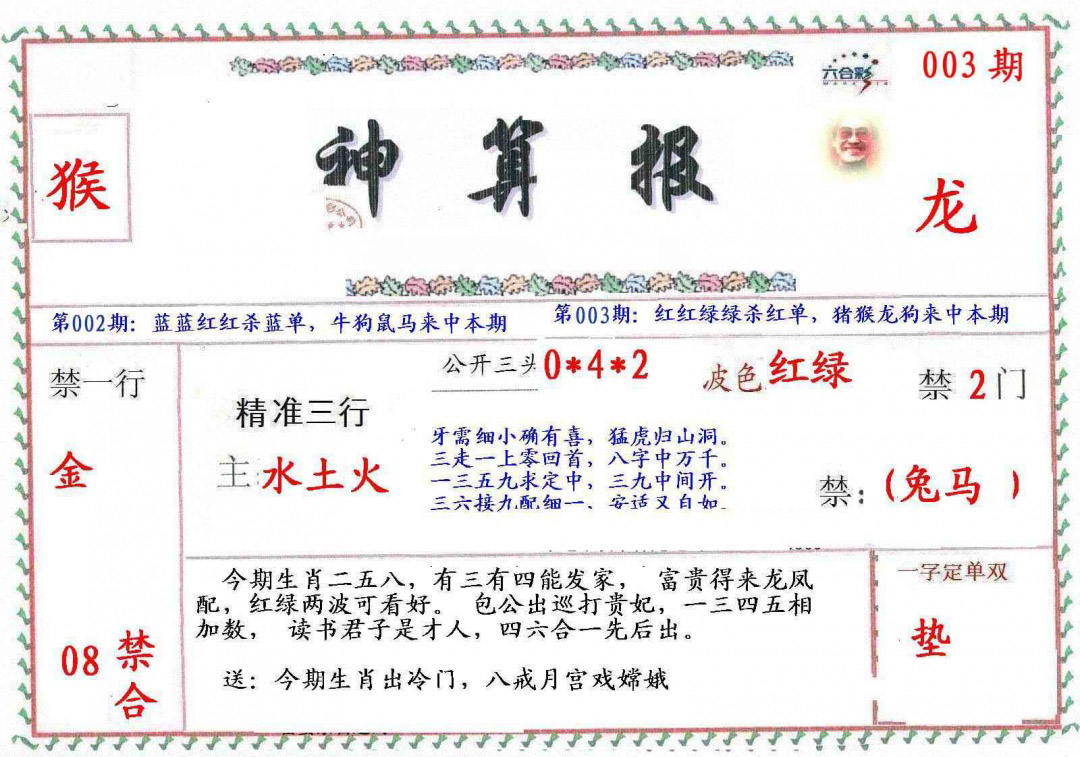 六合彩
003 期
猴
神算报
龙
第002期：蓝蓝红红杀蓝单，牛狗鼠马来中本期
第003期：红红绿绿杀红单，猪猴龙狗来中本期
禁一行
金
08 禁合
精准三行
主：水土火
公开三头 0*4*2
波色 红绿
禁 2 门
牙需细小确有喜，猛虎归山洞。
三走一上零回首，八字中万千。
一三五九求定中，三九中间开。
三六接九配细一、安适又自如.
禁：(兔马 )
今期生肖二五八，有三有四能发家， 富贵得来龙凤
配，红绿两波可看好。 包公出巡打贵妃，一三四五相
加数， 读书君子是才人，四六合一先后出。
送：今期生肖出冷门，八戒月宫戏嫦娥
一字定单双
垫